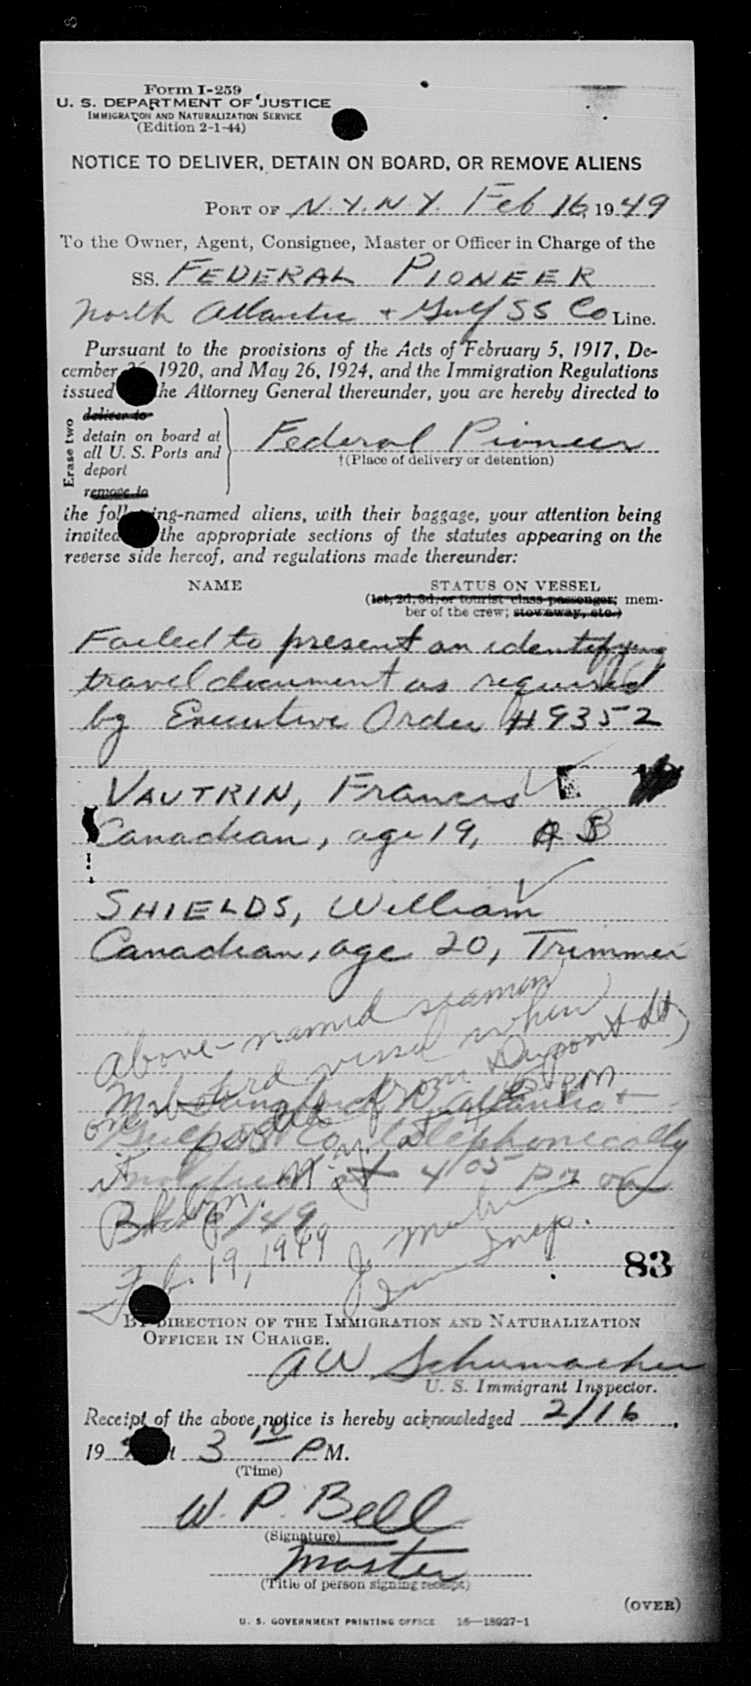 Form I-259
U. S. DEPARTMENT OF JUSTICE
IMMIGRATION AND NATURALIZATION SERVICE
(Edition 2-1-44)
NOTICE TO DELIVER, DETAIN ON BOARD, OR REMOVE ALIENS
PORT OF N.Y.N.Y. Feb 16, 1949
To the Owner, Agent, Consignee, Master or Officer in Charge of the
SS. FEDERAL PIONEER
North Atlantic + Gulf SS Co Line.
Pursuant to the provisions of the Acts of February 5, 1917, De-
cember 1920, and May 26, 1924, and the Immigration Regulations
issued the Attorney General thereunder, you are hereby directed to
Erase two
deliver to
detain on board at
all U. S. Ports and
deport
remove to
Federal Pioneer
†(Place of delivery or detention)
the following-named aliens, with their baggage, your attention being
invited the appropriate sections of the statutes appearing on the
reverse side hereof, and regulations made thereunder:
NAME STATUS ON VESSEL
(1st, 2d, 3d, or tourist class passenger; mem-
ber of the crew; stowaway, etc.)
Failed to present an identifying
travel document as required
by Executive Order #9352
VAUTRIN, Francis
Canadian, age 19, A B
SHIELDS, William
Canadian, age 20, Trimmer
Above-named seamen
vessel when
from Dupont St
Mr of N. Atlantic +
Gulf SS Co telephonically
at 4 05 PM
Feb. 19, 1949
Insp.
83
BY DIRECTION OF THE IMMIGRATION AND NATURALIZATION
OFFICER IN CHARGE.
A W Schumacher
U. S. Immigrant Inspector.
Receipt of the above notice is hereby acknowledged 2/16,
19 at 3 10 P M.
(Time)
W. P. Bell
(Signature)
Master
(Title of person signing receipt)
(OVER)
U. S. GOVERNMENT PRINTING OFFICE 16—18927-1